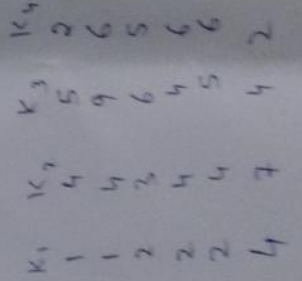 K₁ K₂ K₃ K₄
1 4 5 2
1 4 9 6
2 3 6 5
2 4 4 6
2 4 5 6
4 7 4 2